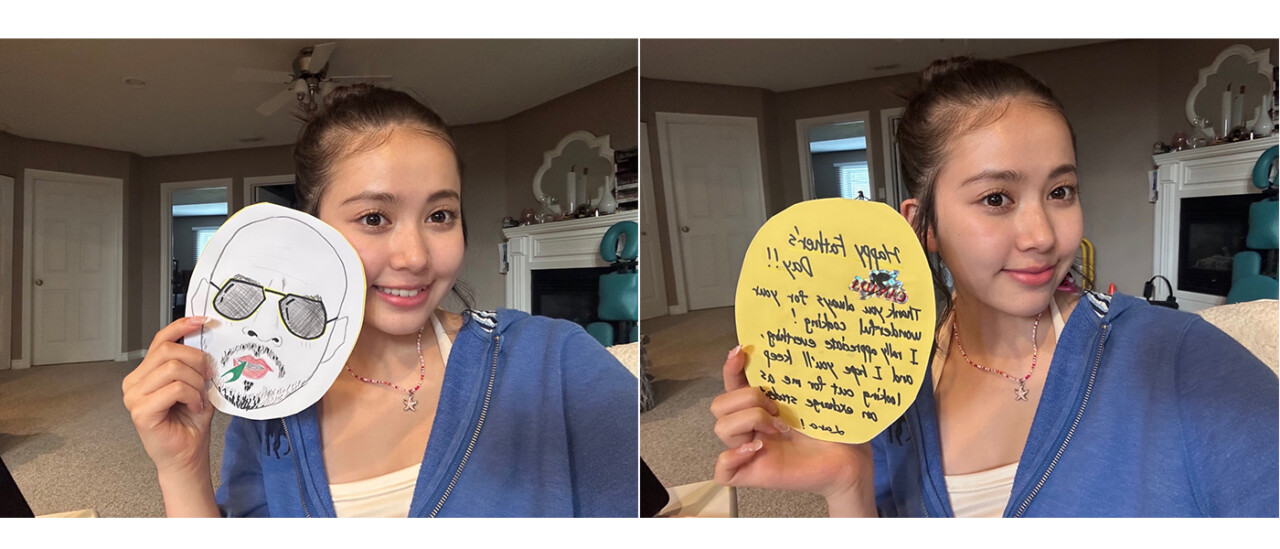 Happy Father's
Day!!
Thank you always for your
wonderful cooking!
I rally appreciate everthing.
and I hope you'll keep
looking out for me as
an exchange studen